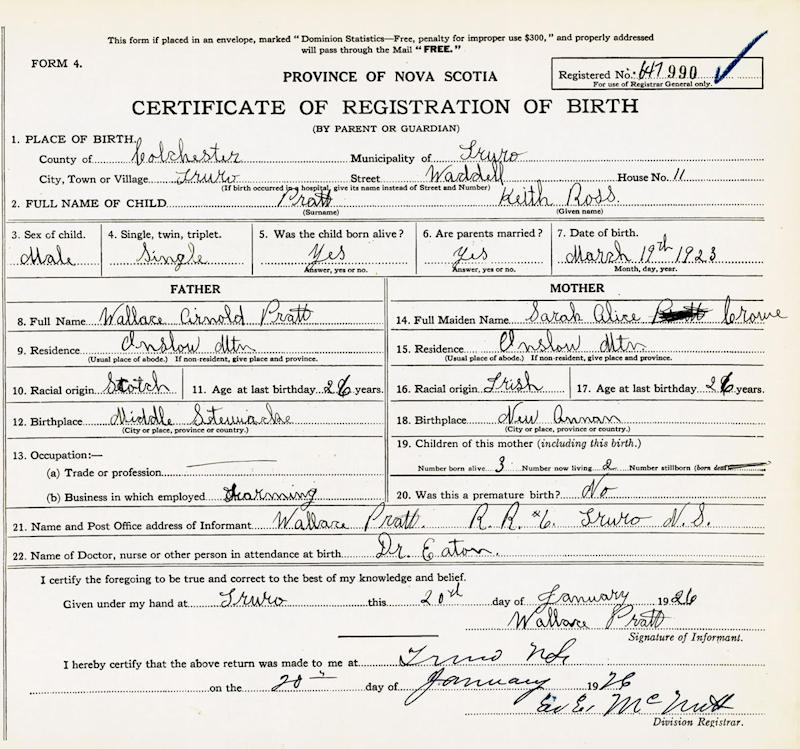 This form if placed in an envelope, marked "Dominion Statistics—Free, penalty for improper use $300," and properly addressed
will pass through the Mail "FREE."
FORM 4.
PROVINCE OF NOVA SCOTIA
Registered No. 990
For use of Registrar General only.
CERTIFICATE OF REGISTRATION OF BIRTH
(BY PARENT OR GUARDIAN)
1. PLACE OF BIRTH,
County of Colchester Municipality of Truro
City, Town or Village Truro Street Waddell House No. 11
(If birth occurred in a hospital, give its name instead of Street and Number)
2. FULL NAME OF CHILD Pratt Keith Ross.
(Surname) (Given name)
3. Sex of child. 4. Single, twin, triplet. 5. Was the child born alive? 6. Are parents married? 7. Date of birth.
Male Single Yes Yes March 19th 1923
Answer, yes or no. Answer, yes or no. Month, day, year.
FATHER MOTHER
8. Full Name Wallace Arnold Pratt 14. Full Maiden Name Sarah Alice Crowe
9. Residence Onslow Mtn 15. Residence Onslow Mtn
(Usual place of abode.) If non-resident, give place and province. (Usual place of abode.) If non-resident, give place and province.
10. Racial origin Scotch 11. Age at last birthday 26 years. 16. Racial origin Irish 17. Age at last birthday 26 years.
12. Birthplace Middle Stewiacke 18. Birthplace New Annan
(City or place, province or country.) (City or place, province or country.)
13. Occupation:— 19. Children of this mother (including this birth.)
(a) Trade or profession Number born alive 3 Number now living 2 Number stillborn (born dead
(b) Business in which employed Farming 20. Was this a premature birth? No
21. Name and Post Office address of Informant Wallace Pratt. R. R. #6. Truro N. S.
22. Name of Doctor, nurse or other person in attendance at birth Dr. Eaton.
I certify the foregoing to be true and correct to the best of my knowledge and belief.
Given under my hand at Truro this 20th day of January 1926
Wallace Pratt
Signature of Informant.
I hereby certify that the above return was made to me at Truro NS
on the 20 day of January 1926
McNutt
Division Registrar.